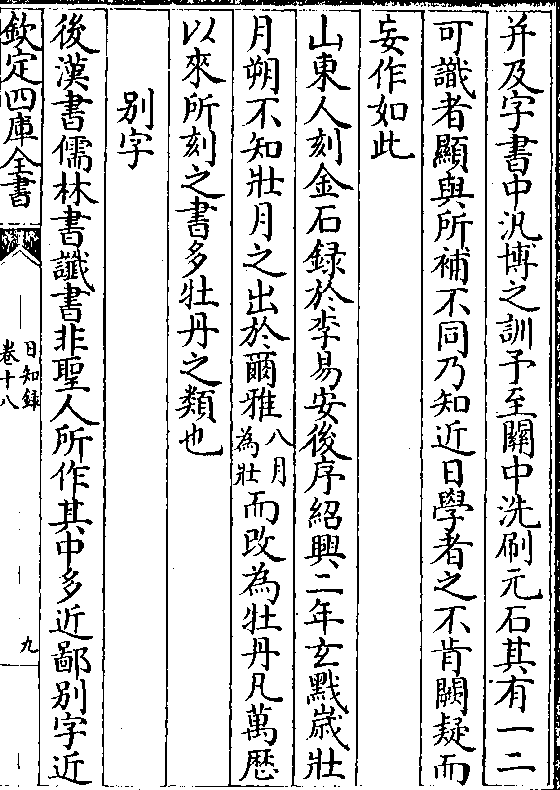 并及字書中汎博之訓予至關中洗刷元石其有一二
可識者顯與所補不同乃知近日學者之不肯闕疑而
妄作如此
山東人刻金石録於李易安後序紹興二年玄黓嵗壯
月朔不知壯月之出於爾雅八月為壯而改為牡丹凡萬歴
以來所刻之書多牡丹之類也
别字
後漢書儒林書讖書非聖人所作其中多近鄙别字近
欽定四庫全書
日知録
卷十八
九